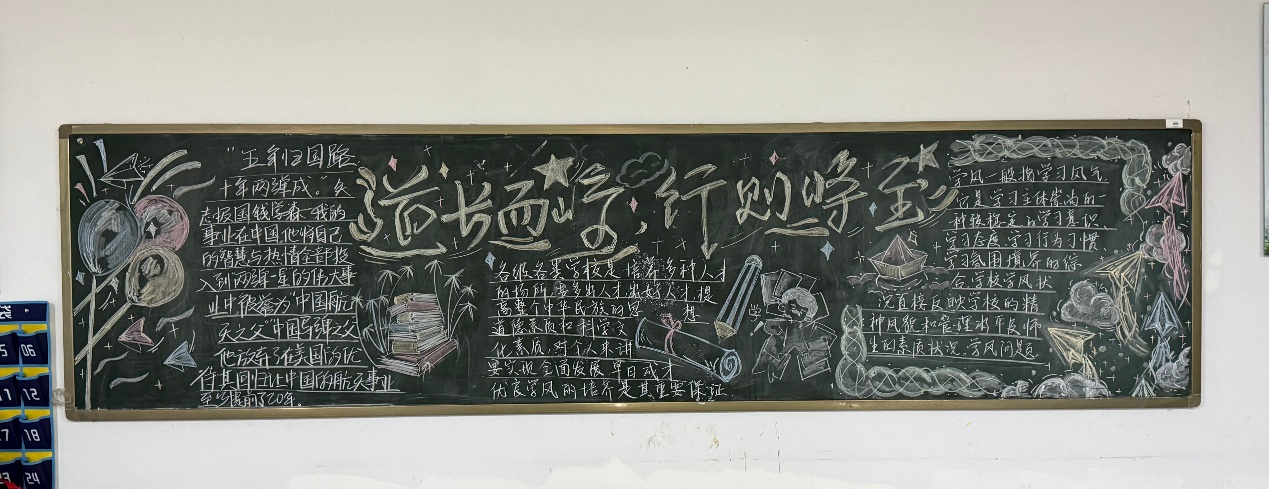 道长而学，行则将至
"五年归国路
十年两弹成。"矢
志报国钱学森 我的
事业在中国 他将自己
的智慧与热情全部投
入到两弹一星的伟大事
业中 被誉为"中国航
天之父"中国导弹之父
他放弃了在美国的优
待 其回归让中国的航天事业
至少提前了20年。
各级各类学校是培养各种人才
的场所,要多出人才出好人才,提
高整个中华民族的思想
道德素质和科学文
化素质,对个人来讲
要实现全面发展 早日成才
优良学风的培养是其重要保证.
学
学风一般指学习风气
它是学习主体崇尚的一
种较稳定的学习意识
学习态度 学习行为习惯
学习氛围 培养的综
合 学校学风状
况直接反映学校的精
神风貌和管理水平及师
生的素质状况。学风问题
05 06
11 12
17 18
23 24